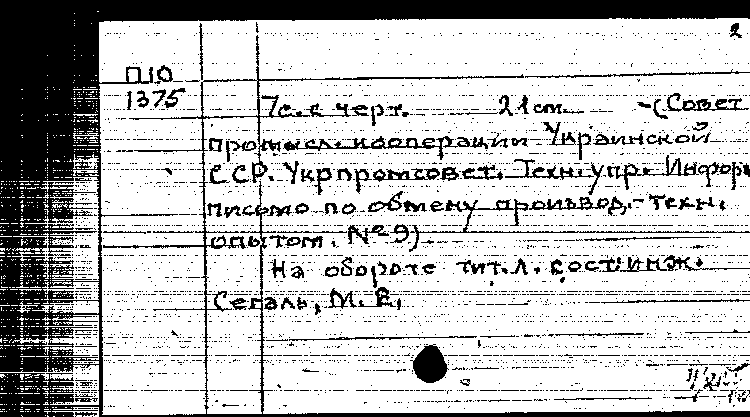 2
П10
1375
7с. с черт. 21 см. -(Совет
промысл. кооперации Украинской
ССР. Укрпромсовет. Техн. упр. Информ.
письмо по обмену производ.-техн.
опытом. № 9)
На обороте тит. л. сост: инж.
Сегаль, М. Е.